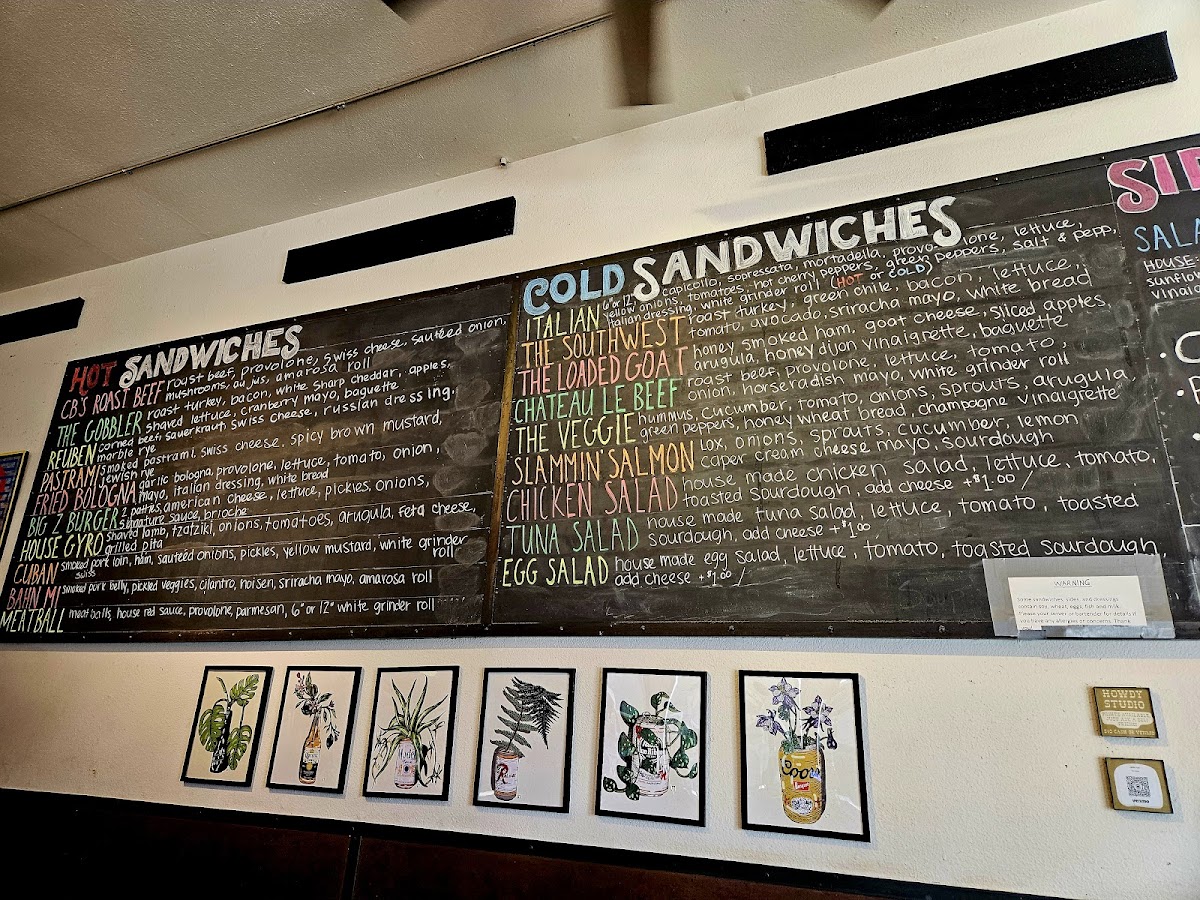 HOT SANDWICHES
CB'S ROAST BEEF roast beef, provolone, swiss cheese, sautéed onion,
mushrooms, au jus, amarosa roll
THE GOBBLER roast turkey, bacon, white sharp cheddar, apples,
shaved lettuce, cranberry mayo, baguette
REUBEN corned beef, sauerkraut, swiss cheese, russian dressing,
marble rye
PASTRAMI smoked pastrami, swiss cheese, spicy brown mustard,
jewish rye
FRIED BOLOGNA garlic bologna, provolone, lettuce, tomato, onion,
mayo, italian dressing, white bread
BIG Z BURGER 2 patties, american cheese, lettuce, pickles, onions,
signature sauce, brioche
HOUSE GYRO shaved lamb, tzatziki, onions, tomatoes, arugula, feta cheese,
grilled pita
CUBAN smoked pork loin, ham, sautéed onions, pickles, yellow mustard, white grinder
swiss roll
BAHN MI smoked pork belly, pickled veggies, cilantro, hoisen, sriracha mayo, amarosa roll
MEATBALL meatballs, house red sauce, provolone, parmesan, 6" or 12" white grinder roll
COLD SANDWICHES
ITALIAN 6" or 12" capicollo, sopressata, mortadella, provolone, lettuce,
yellow onions, tomatoes, hot cherry peppers, green peppers, salt & pepp,
italian dressing, white grinder roll (HOT or COLD)
THE SOUTHWEST roast turkey, green chile, bacon, lettuce,
tomato, avocado, sriracha mayo, white bread
THE LOADED GOAT honey smoked ham, goat cheese, sliced apples,
arugula, honey dijon vinaigrette, baguette
CHATEAU LE BEEF roast beef, provolone, lettuce, tomato,
onion, horseradish mayo, white grinder roll
THE VEGGIE hummus, cucumber, tomato, onions, sprouts, arugula,
green peppers, honey wheat bread, champagne vinaigrette
SLAMMIN' SALMON lox, onions, sprouts, cucumber, lemon
caper cream cheese mayo, sourdough
CHICKEN SALAD house made chicken salad, lettuce, tomato,
toasted sourdough, add cheese +$1.00 /
TUNA SALAD house made tuna salad, lettuce, tomato, toasted
sourdough, add cheese +$1.00
EGG SALAD house made egg salad, lettuce, tomato, toasted sourdough,
add cheese +$1.00 /
SALA
HOUSE:
sunfl
vinaig
WARNING
Some sandwiches, sides, and dressings
contain soy, wheat, eggs, fish and milk.
Please your server or bartender for details if
you have any allergies or concerns. Thank
Coors
HOWDY
STUDIO